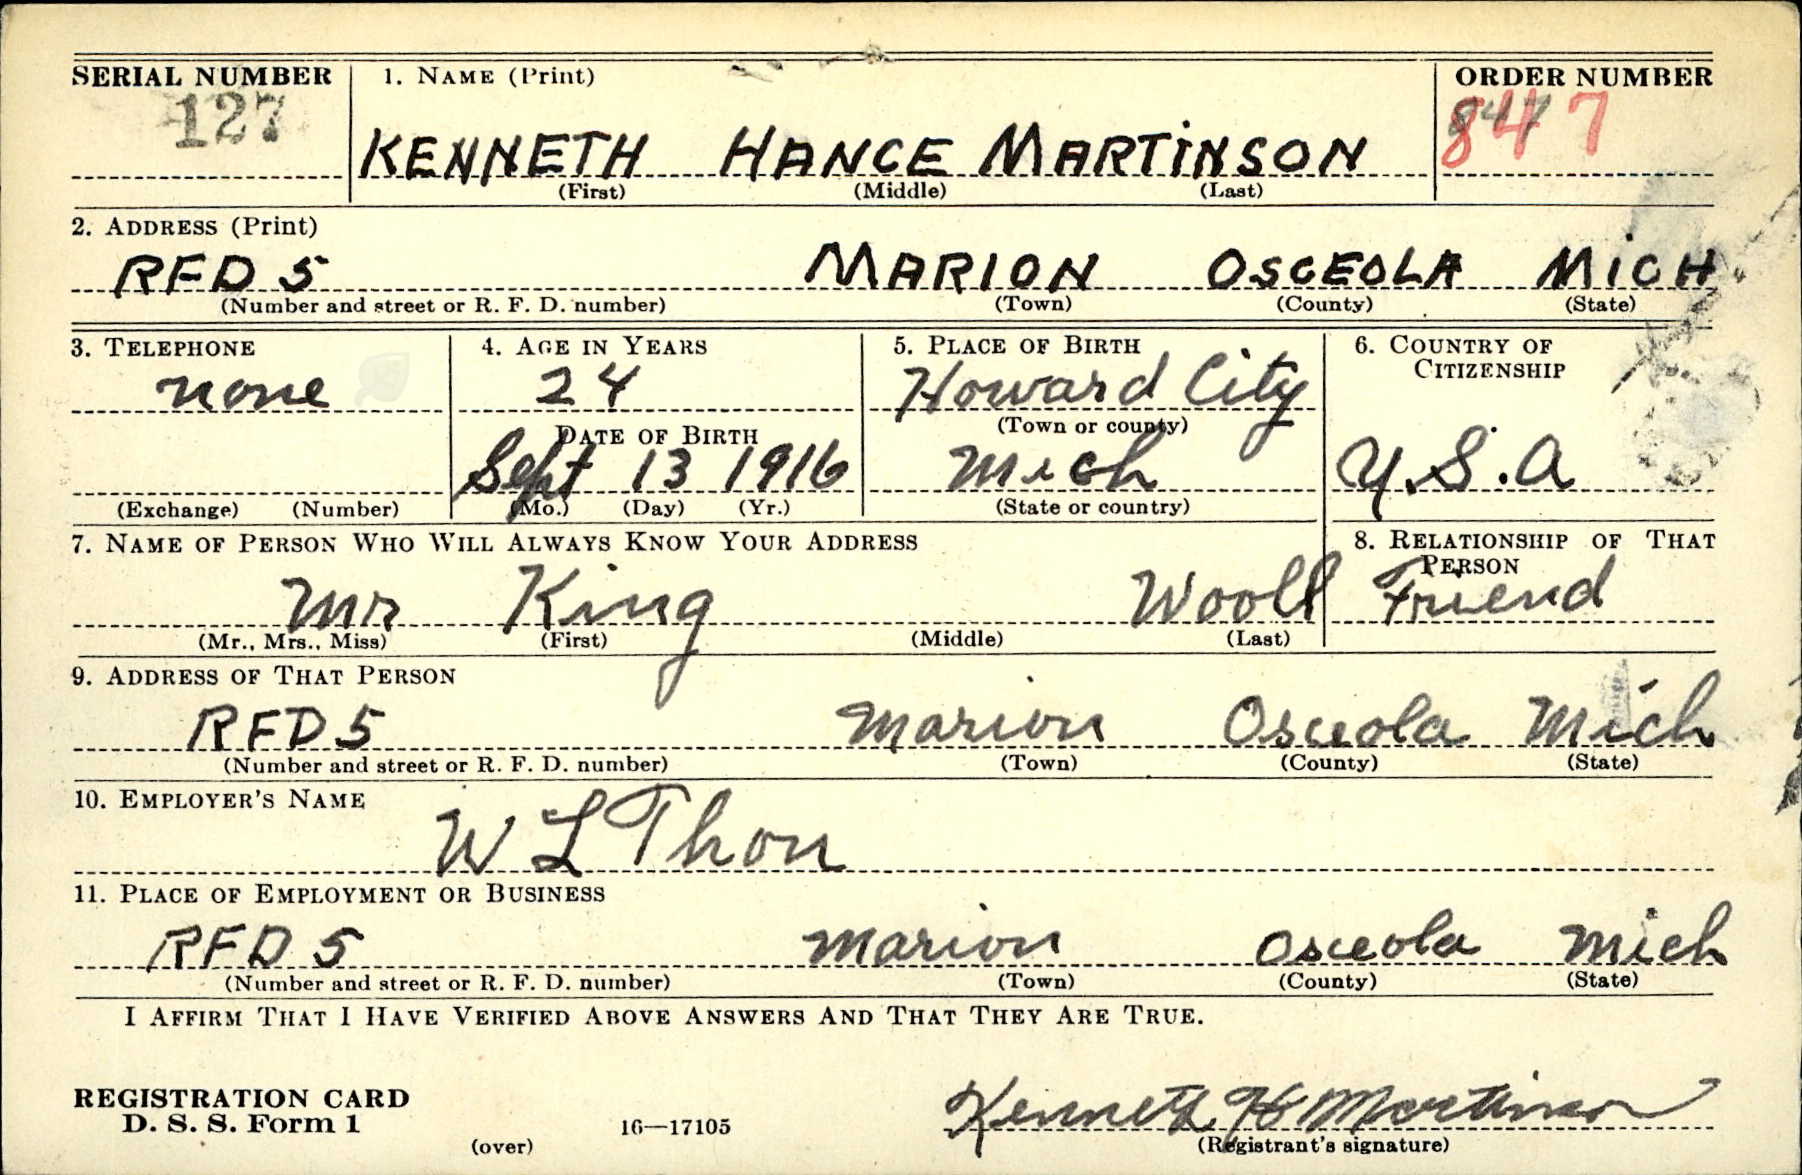 SERIAL NUMBER 1. NAME (Print) ORDER NUMBER
127 847 847
KENNETH HANCE MARTINSON
(First) (Middle) (Last)
2. ADDRESS (Print)
RFD 5 MARION OSCEOLA MICH
(Number and street or R. F. D. number) (Town) (County) (State)
3. TELEPHONE 4. AGE IN YEARS 5. PLACE OF BIRTH 6. COUNTRY OF CITIZENSHIP
none 24 Howard City
DATE OF BIRTH (Town or county)
Sept 13 1916 Mich U.S.A
(Exchange) (Number) (Mo.) (Day) (Yr.) (State or country)
7. NAME OF PERSON WHO WILL ALWAYS KNOW YOUR ADDRESS 8. RELATIONSHIP OF THAT PERSON
Mr King Friend
(Mr., Mrs., Miss) (First) (Middle) (Last)
9. ADDRESS OF THAT PERSON
RFD 5 Marion Osceola Mich
(Number and street or R. F. D. number) (Town) (County) (State)
10. EMPLOYER'S NAME
W L Thon
11. PLACE OF EMPLOYMENT OR BUSINESS
RFD 5 Marion Osceola Mich
(Number and street or R. F. D. number) (Town) (County) (State)
I AFFIRM THAT I HAVE VERIFIED ABOVE ANSWERS AND THAT THEY ARE TRUE.
REGISTRATION CARD Kenneth H Martinson
D. S. S. Form 1 16—17105
(over) (Registrant's signature)